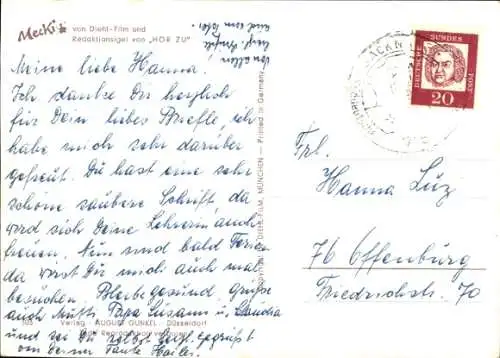 Mecki
von Diehl-Film und
Redaktionsigel von „HÖR ZU"
Meine liebe Hanna.
Ich danke Dir herzlich
für Dein liebes Briefle, ich
habe mich sehr darüber
gefreut. Du hast eine sehr
schöne saubere Schrift, da
wird sich Deine Lehrerin auch
freuen. Nun sind bald Ferien
da wirst Du mich auch mal
besuchen. Bleibe gesund, Grüße
auch Mutti, Papa Susann u. Claudia
und sei Du selbst herzl. gegrüßt
von Deiner Tante
Verlag AUGUST GUNKEL Düsseldorf
DIEHL-FILM, MÜNCHEN — Printed in Germany
DEUTSCHE BUNDESPOST
20
Frl.
Hanna Luz
76 Offenburg
Friedrichstr. 70